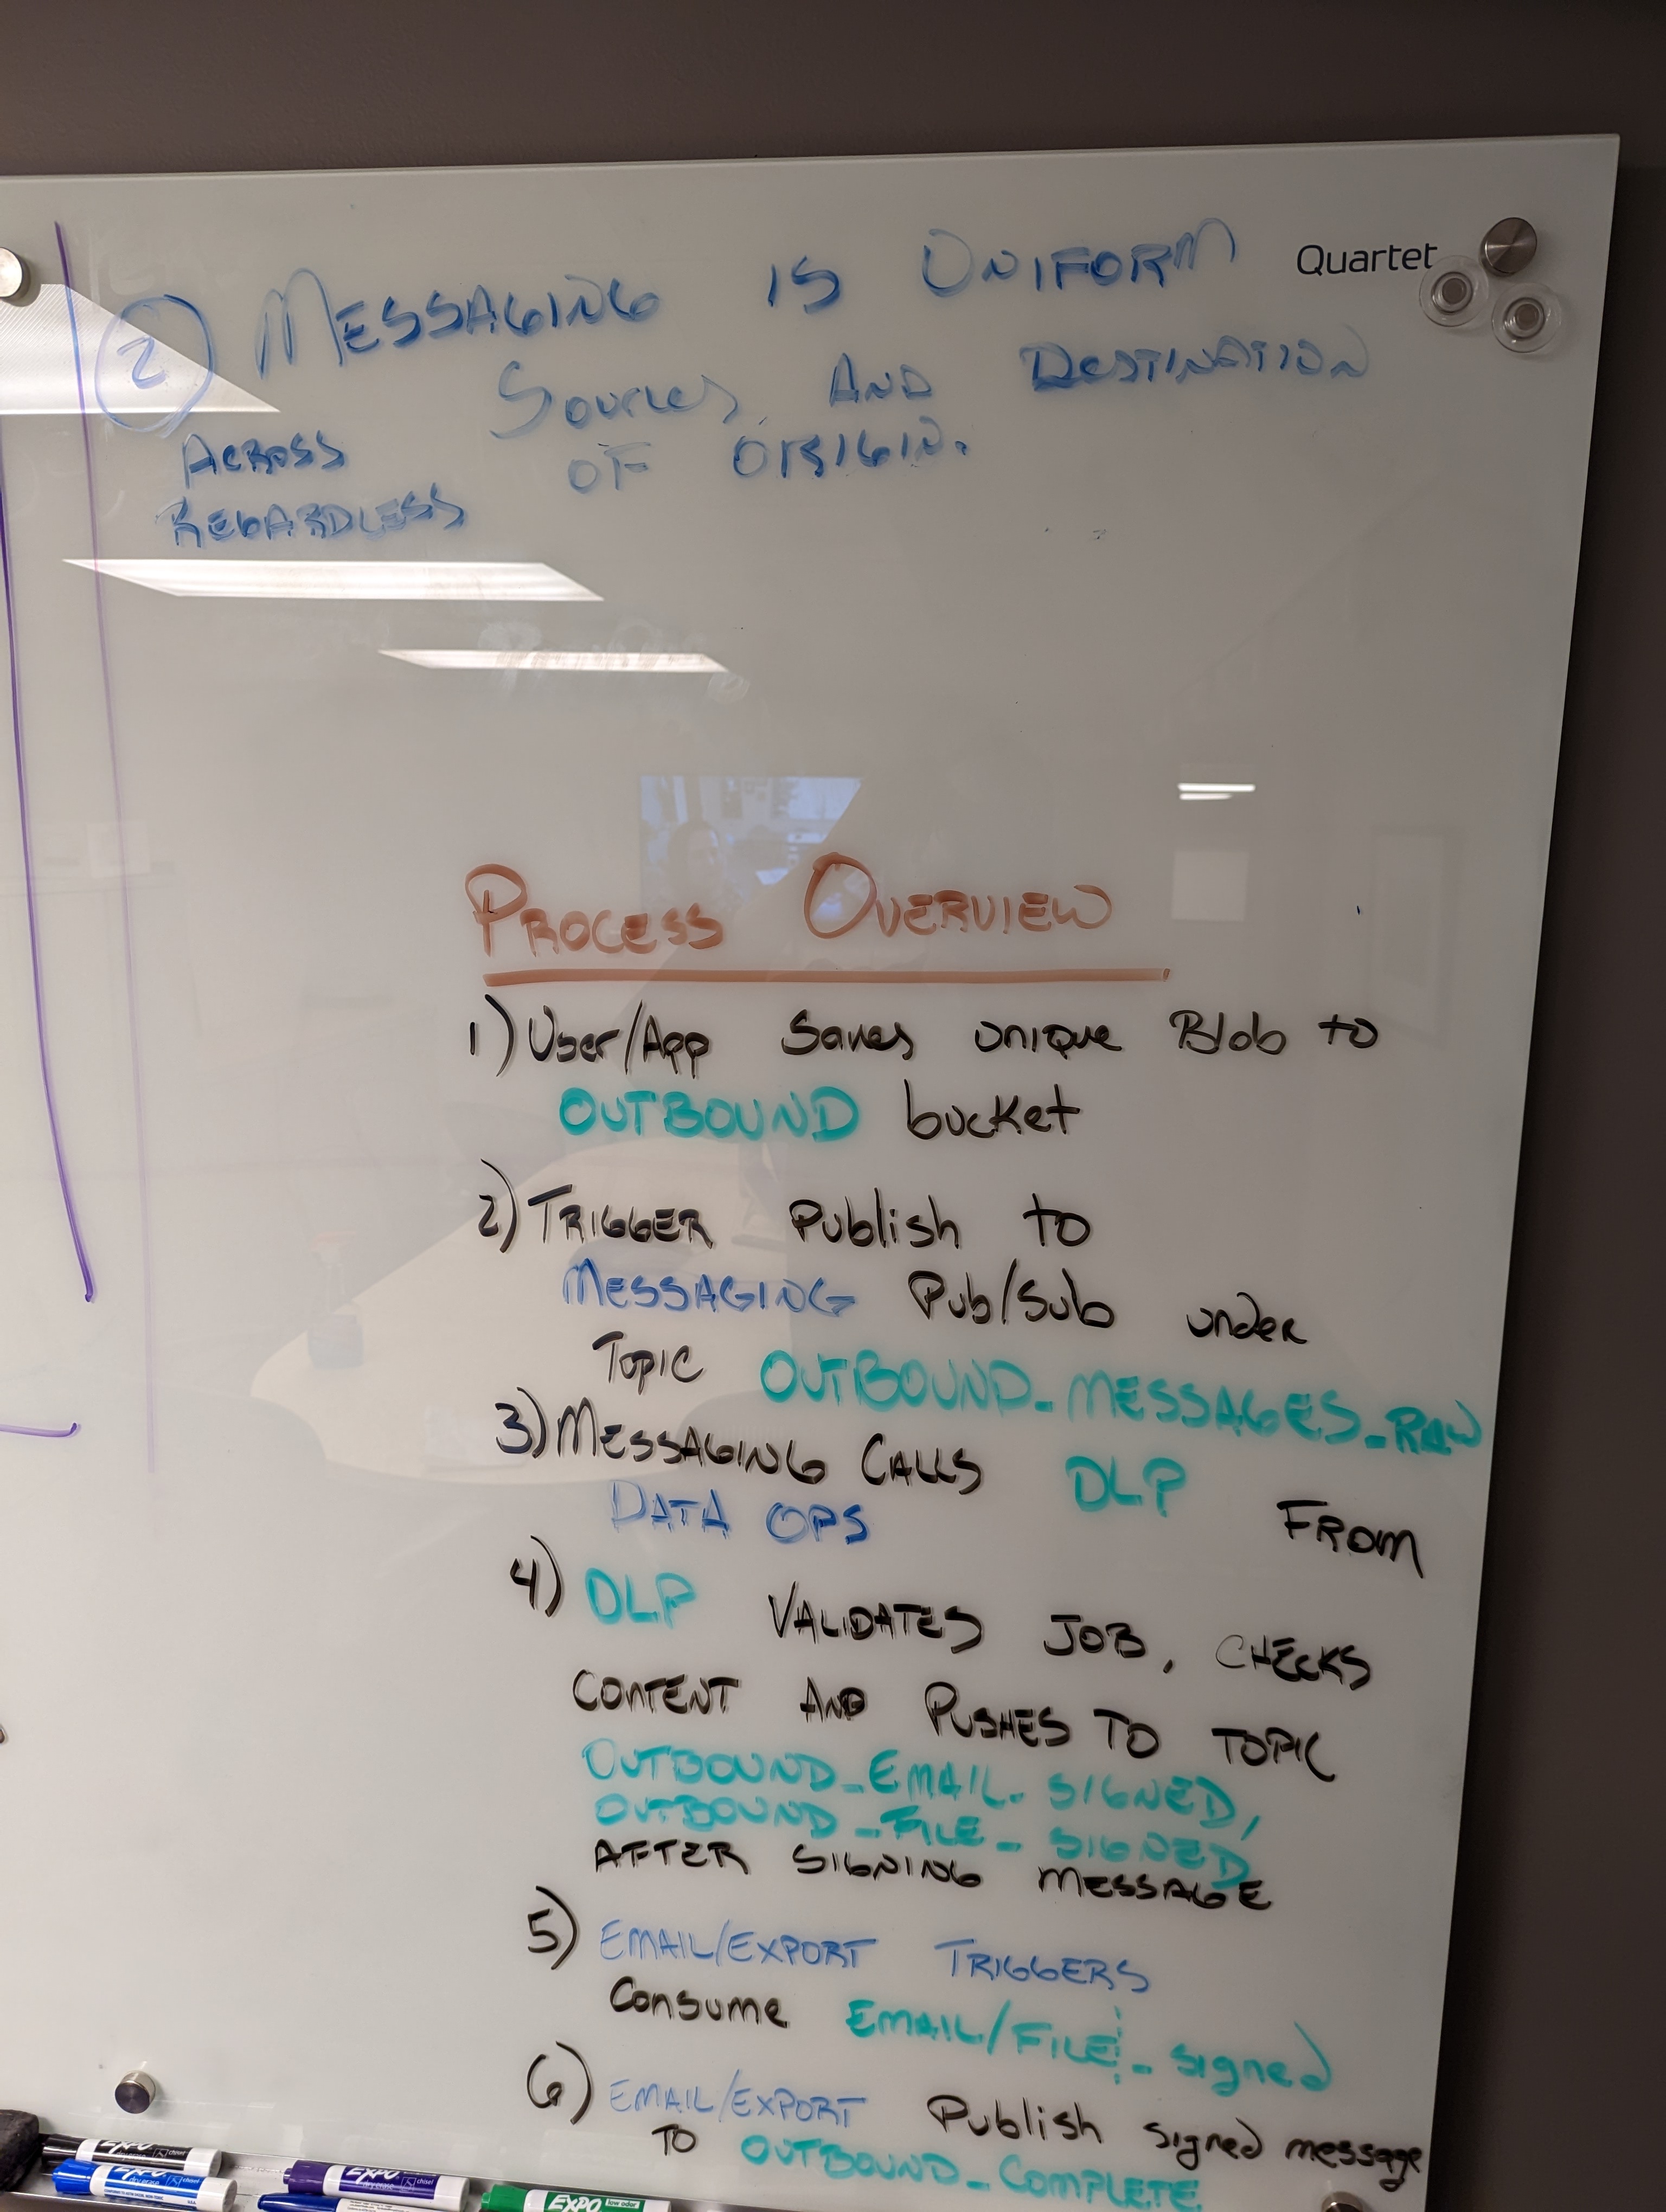 ② MESSAGING IS UNIFORM
ACROSS SOURCES AND DESTINATION
REGARDLESS OF ORIGIN.
Quartet
PROCESS OVERVIEW
1) User/App Saves unique Blob to
OUTBOUND bucket
2) TRIGGER Publish to
MESSAGING Pub/Sub under
Topic OUTBOUND_MESSAGES_RAW
3) MESSAGING CALLS DLP FROM
DATA OPS
4) DLP VALIDATES JOB, CHECKS
CONTENT AND PUSHES TO TOPIC
OUTBOUND_EMAIL_SIGNED,
OUTBOUND_FILE_SIGNED
AFTER SIGNING MESSAGE
5) EMAIL/EXPORT TRIGGERS
Consume EMAIL/FILE_signed
6) EMAIL/EXPORT Publish signed message
TO OUTBOUND_COMPLETE
EXPO chisel
EXPO dry erase chisel
EXPO dry erase chisel
EXPO low odor